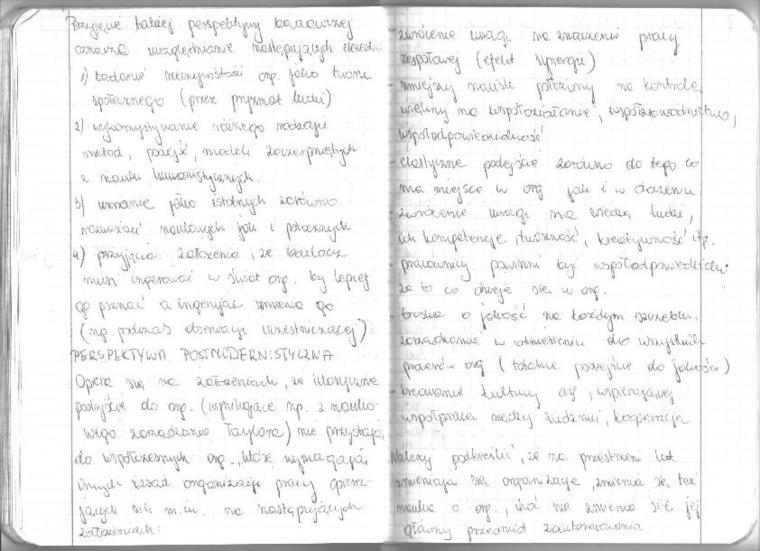 Przyjęcie takiej perspektywy badawczej
oznacza uwzględnianie następujących elementów
1) badanie rzeczywistości org. jako tworu
społecznego (przez pryzmat ludzi)
2) wykorzystywanie różnego rodzaju
metod, podejść, modeli zaczerpniętych
z nauk humanistycznych.
3) uznanie jako istotnych zarówno
naukowych jak i potocznych
4) przyjęcie założenia, że badacz
musi ingerować w świat org. by lepiej
go poznać a ingerując zmienia go
(np. podczas obserwacji uczestniczącej)
PERSPEKTYWA POSTMODERNISTYCZNA
Opiera się na założeniach, że klasyczne
podejście do org. (wynikające np. z nauko-
wego zarządzania Taylora) nie przystają
do współczesnych org., które wymagają
innych zasad organizacji pracy opiera-
jących się m.in. na następujących
założeniach:
- zwrócenie uwagi na znaczenie pracy
zespołowej (efekt synergii)
- mniejszy nacisk położony na kontrolę
większy na współdziałanie,
współodpowiedzialność
- elastyczne podejście zarówno do tego co
ma miejsce w org. jak i w otoczeniu
- zwrócenie uwagi na wiedzę ludzi,
ich kompetencje, twórczość, kreatywność itp.
- pracownicy powinni być współodpowiedzialni
za to co dzieje się w org.
- troska o jakość na każdym szczeblu
zarządzania w odniesieniu do wszystkich
procesów org. (totalne podejście do jakości)
- kreowanie kultury org., wspierającej
współpracę między ludźmi, kooperację
Należy podkreślić, że na przestrzeni lat
zmieniają się organizacje, zmienia się też
nauka o org., choć nie zmienia się jej
główny przedmiot zainteresowania